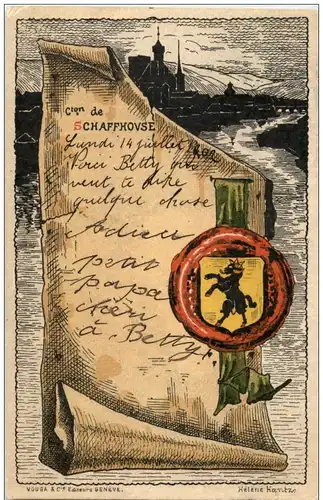 Cton de
SCHAFFHOUSE
Lundi 14 juillet
Voici Betty qui
veut te dire
quelque chose
Adieu
petit
papa
chéri
à Betty
VOUGA & Cie Editeurs GENÈVE.
Hélène Hantz